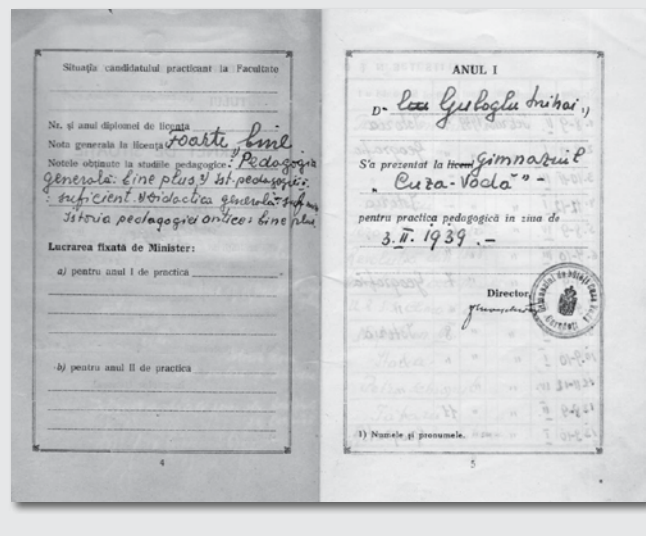 Situația candidatului practicant la Facultate
Nr. și anul diplomei de licența
Nota generala la licența Foarte bine
Notele obținute la studiile pedagogice: Pedagogia
generală: bine plus; Ist. pedagogiei:
: suficient. Didactica generală: suf
Istoria pedagogiei antice: bine plus
Lucrarea fixată de Minister:
a) pentru anul I de practică
b) pentru anul II de practica
4
ANUL I
D- Guboglu Mihai 1)
S'a prezentat la liceul Gimnaziul
„Cuza-Vodă” -
pentru practica pedagogică in ziua de
3. II. 1939. -
Director,
1) Numele și pronumele.
5